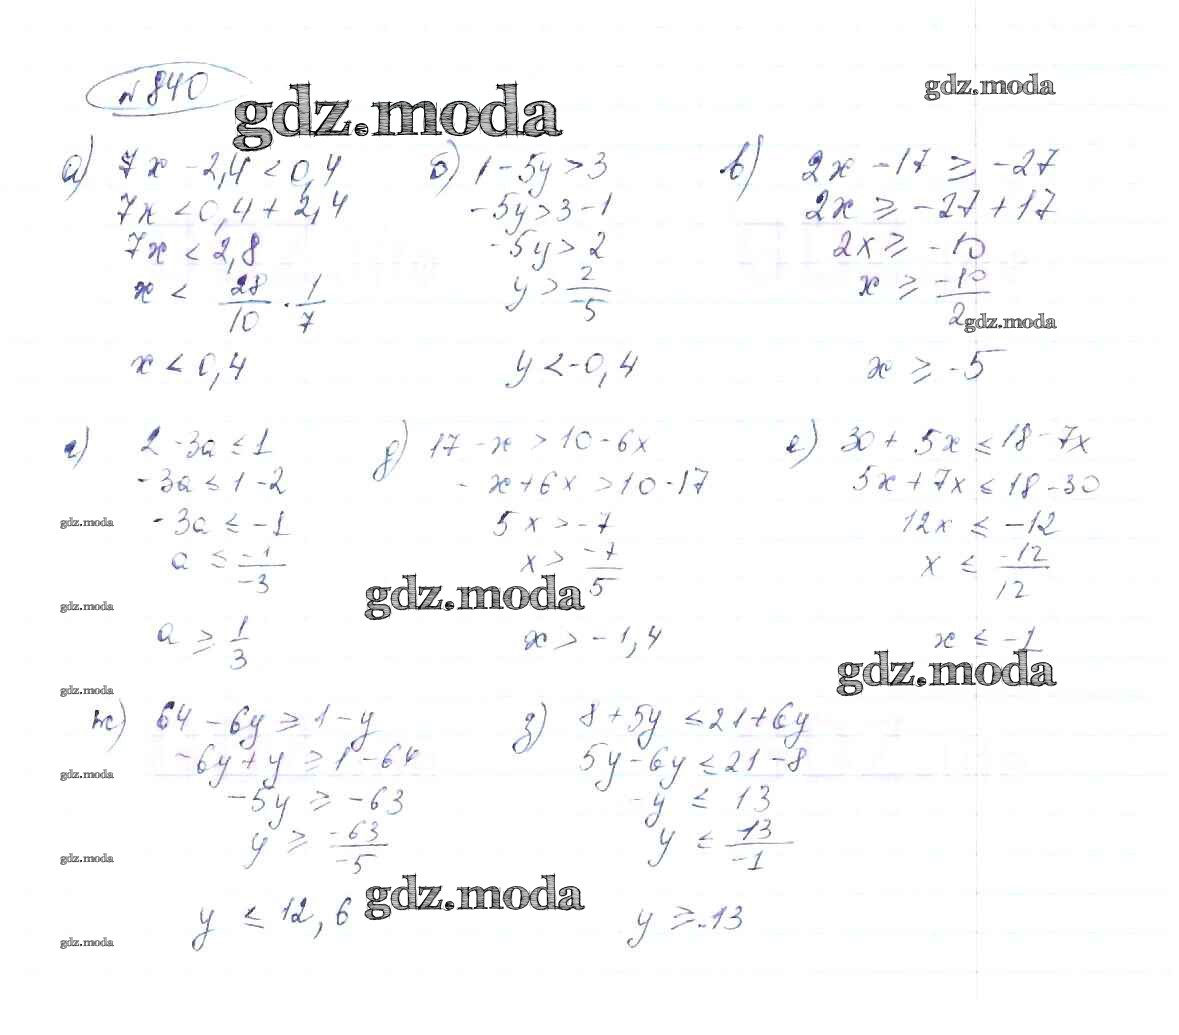 №840
gdz.moda
gdz.moda
а) 7x - 2,4 < 0,4
7x < 0,4 + 2,4
7x < 2,8
x < 28/10 · 1/7
x < 0,4
б) 1 - 5y > 3
-5y > 3 - 1
-5y > 2
y > 2/-5
y < -0,4
в) 2x - 17 ≥ -27
2x ≥ -27 + 17
2x ≥ -10
x ≥ -10/2
gdz.moda
x ≥ -5
г) 2 - 3a ≤ 1
-3a ≤ 1 - 2
gdz.moda
-3a ≤ -1
a ≤ -1/-3
gdz.moda
a ≥ 1/3
д) 17 - x > 10 - 6x
-x + 6x > 10 - 17
5x > -7
x > -7/5
gdz.moda
x > -1,4
е) 30 + 5x ≤ 18 - 7x
5x + 7x ≤ 18 - 30
12x ≤ -12
x ≤ -12/12
x ≤ -1
gdz.moda
gdz.moda
ж) 64 - 6y ≥ 1 - y
-6y + y ≥ 1 - 64
gdz.moda
-5y ≥ -63
y ≥ -63/-5
gdz.moda
y ≤ 12,6
gdz.moda
gdz.moda
з) 8 + 5y ≤ 21 + 6y
5y - 6y ≤ 21 - 8
-y ≤ 13
y ≤ 13/-1
y ≥ -13